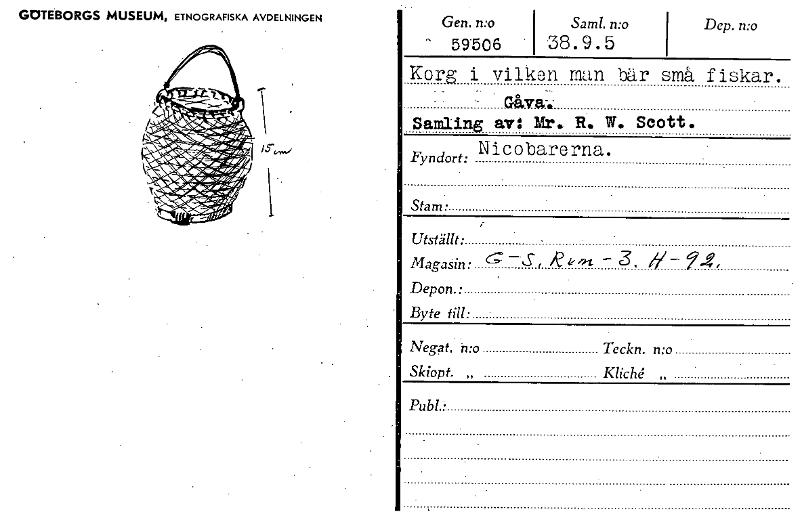 GÖTEBORGS MUSEUM, ETNOGRAFISKA AVDELNINGEN
15 cm
Gen. n:o Saml. n:o Dep. n:o
59506 38.9.5
Korg i vilken man bär små fiskar.
Gåva.
Samling av: Mr. R. W. Scott.
Fyndort: Nicobarerna.
Stam:
Utställt:
Magasin: G-S. Rum-3. H-92.
Depon.:
Byte till:
Negat. n:o Teckn. n:o
Skiopt. „ Kliché „
Publ.: